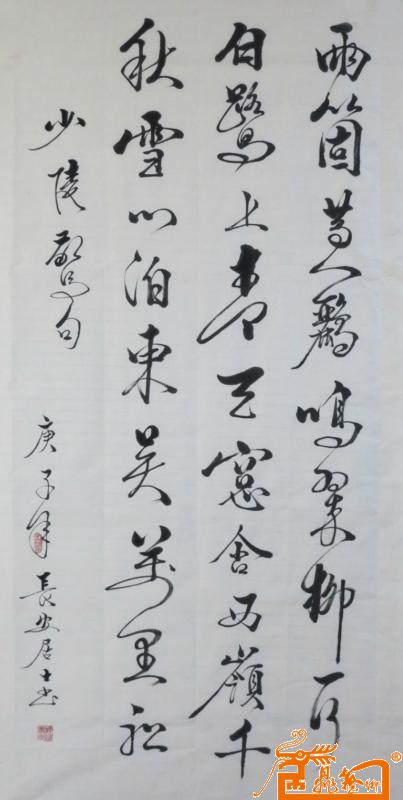 兩箇黃鸝鳴翠柳一行
白鷺上青天窓含西嶺千
秋雪门泊東吴萬里船
少陵警句
庚子年長安居士书